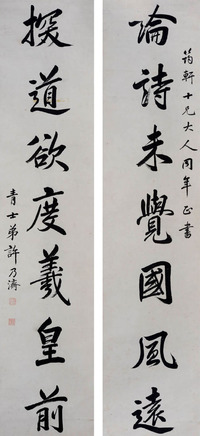 筠軒十兄大人同年正書
論詩未覺國風遠
探道欲度羲皇前
青士弟許乃濟